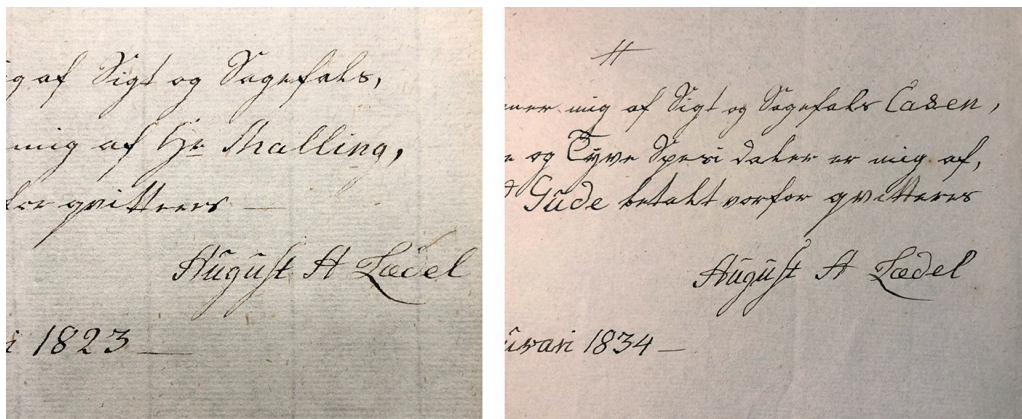 ig af Sigt og Sagefals,
mig af Hr Malling,
for qvitteres —
August A Lædel
i 1823 —
#
ner mig af Sigt og Sagefals Cassen,
e og Tyve Speci daler er mig af,
Gude betalt vorfor qvitteres
August A Lædel
uari 1834 —